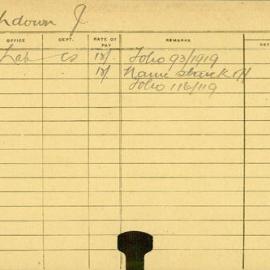 hdown J
OFFICE DEPT. RATE OF PAY REMARKS DE
Lab CS 13/ Folio 93/1919
13/ Name struck off
Folio 116/119